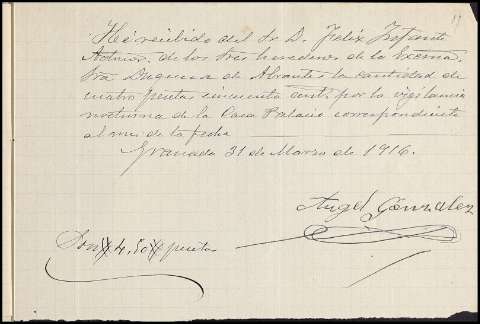 He recibido del Sr. D. Felix Infante
Actuor. de los tres herederos de la Excma.
Sra Duquesa de Abrantes la cantidad de
cuatro pesetas cincuenta cent. por la vigilancia
nocturna de la Casa Palacio correspondiente
al mes de la fecha
Granada 31 de Marzo de 1916.
Angel Gonzalez
Son 4,50 pesetas